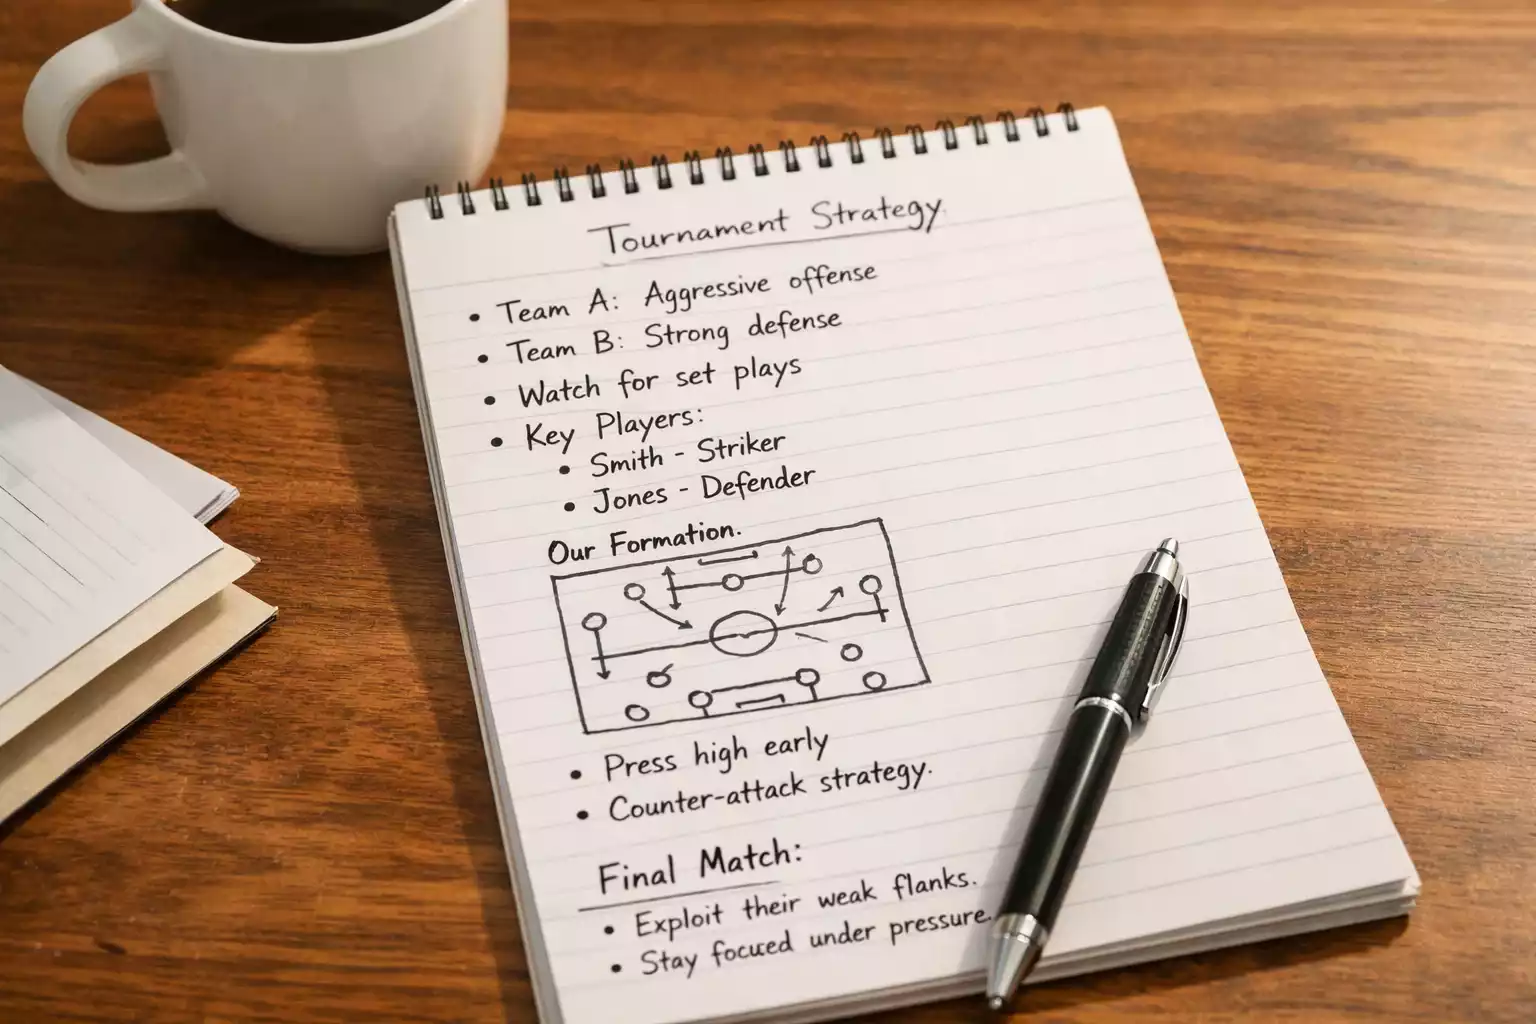 Tournament Strategy
• Team A: Aggressive offense
• Team B: Strong defense
• Watch for set plays
• Key Players:
• Smith - Striker
• Jones - Defender
Our Formation.
• Press high early
• Counter-attack strategy.
Final Match:
• Exploit their weak flanks.
• Stay focused under pressure.